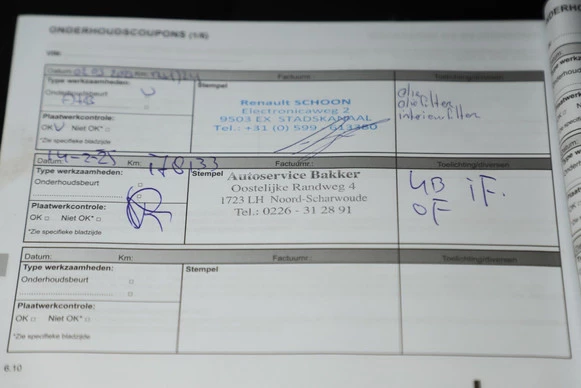 ONDERHOUDSCOUPONS (1/6)
VIN:
Datum: Km: Factuurnr.: Toelichting/diversen
Type werkzaamheden: Stempel
Onderhoudsbeurt V olie
oliefilter
interieurfilter
Renault SCHOON
Electronicaweg 2
9503 EX STADSKANAAL
Tel.: +31 (0) 599 - 613380
Plaatwerkcontrole:
OK V Niet OK*
*Zie specifieke bladzijde
Datum: 14-2-25 Km: 178,33 Factuurnr.: Toelichting/diversen
Type werkzaamheden: Stempel
Onderhoudsbeurt
Autoservice Bakker
Oostelijke Randweg 4
1723 LH Noord-Scharwoude
Tel.: 0226 - 31 28 91
GB iF.
OF
Plaatwerkcontrole:
OK Niet OK*
*Zie specifieke bladzijde
Datum: Km: Factuurnr.: Toelichting/diversen
Type werkzaamheden: Stempel
Onderhoudsbeurt
Plaatwerkcontrole:
OK Niet OK*
*Zie specifieke bladzijde
6.10